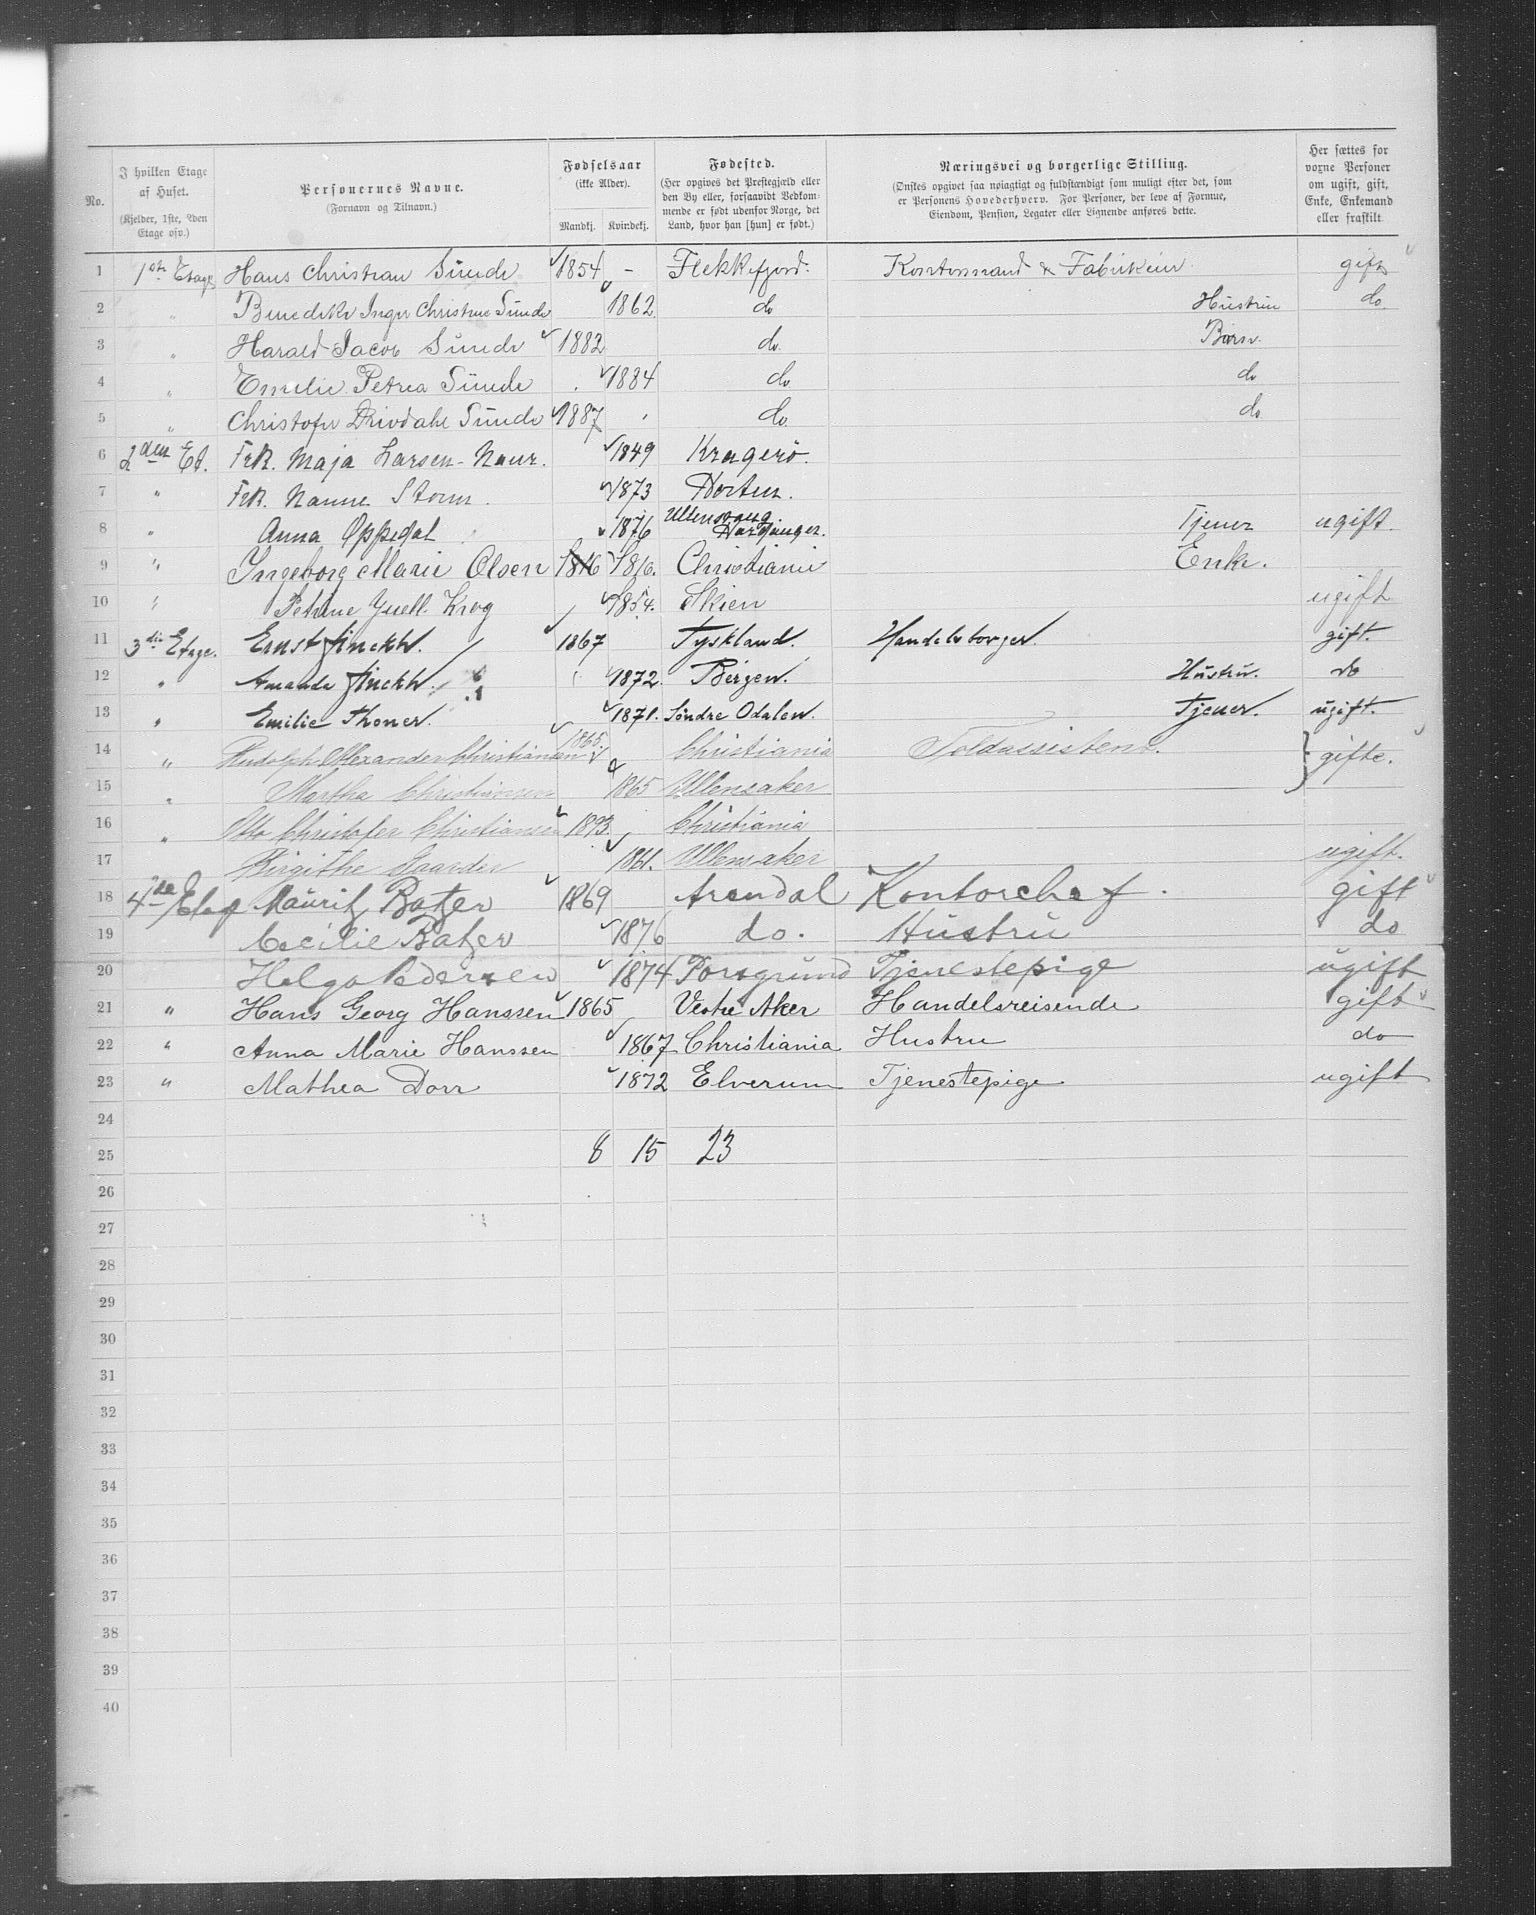 No. | I hvilken Etage af Huset. (Kjelder, 1ste, 2den Etage osv.) | Personernes Navne. (Fornavn og Tilnavn.) | Fødselsaar (ikke Alder). Mandkj. Kvindekj. | Fødested. (Her opgives det Prestegjæld eller den By eller, forsaavidt Vedkommende er født udenfor Norge, det Land, hvor han [hun] er født.) | Næringsvei og borgerlige Stilling. (Ønskes opgivet saa nøiagtigt og fuldstændigt som muligt efter det, som er Personens Hovederhverv. For Personer, der leve af Formue, Eiendom, Pension, Legater eller Lignende anføres dette. | Her sættes for voxne Personer om ugift, gift, Enke, Enkemand eller fraskilt
1 1ste Etage Hans Christian Sünde 1854 - Flekkefjord. & gift
2 " Inger Christine Sünde 1862 do Hustru do.
3 " Harald Jacob Sünde 1882 do. Børn.
4 " Emelie Petrea Sünde 1884 do do
5 " Christofer Sünde 1887 do. do
6 2den Et. Frk. Maja Larsen-Naur. 1849 Kragerö.
7 " Frk. Nanne Storm. 1873 Horten.
8 " Anna Oppedal 1876 Ullensvang Hardanger. Tjener ugift.
9 " Ingeborg Marie Olsen 1816 1816. Christiania Enke.
10 " Petrine Juell Krog 1854. Skien ugift
11 3die Etage. Ernst Finckh. 1867 Tyskland. Handelsborger. gift.
12 " Amanda Finckh. 1872. Bergen. Hustru. do
13 " Emilie Thoner. 1871. Söndre Odalen. Tjener. ugift.
14 " Rudolph Alexander Christiansen 1865. Christiania Toldassistent. } gifte.
15 " Martha Christiansen 1865 Ullensaker
16 " Otto Christofer Christiansen 1893. Christiania
17 Birgithe Gaarder 1861. Ullensaker ugift.
18 4de Etage Mauritz Batzer 1869 Arendal Kontorchef. gift
19 Cecilie Batzer 1876 do. Hustru do
20 Helga Pedersen 1874 Porsgrund Tjenestepige ugift
21 " Hans Georg Hanssen 1865 Vestre Aker Handelsreisende gift
22 " Anna Marie Hanssen 1867 Christiania Hustru do
23 " Mathea Dorr 1872 Elverum Tjenestepige ugift
24
25 8 15 23
26
27
28
29
30
31
32
33
34
35
36
37
38
39
40